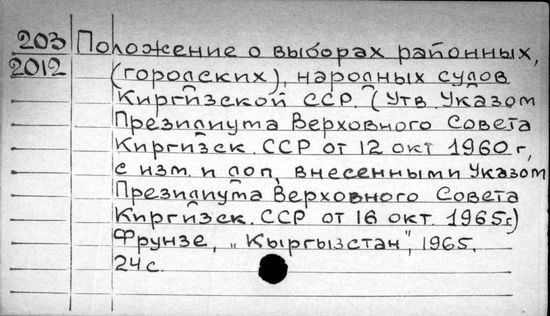 203 Положение о выборах районных,
2012 (городских), народных судов
Киргизской ССР. (Утв. Указом
Президиума Верховного Совета
Киргизск. ССР от 12 окт 1960 г,
с изм. и доп, внесенными Указом
Президиума Верховного Совета
Киргизск. ССР от 16 окт. 1965г.)
Фрунзе, „Кыргызстан", 1965.
24 с.